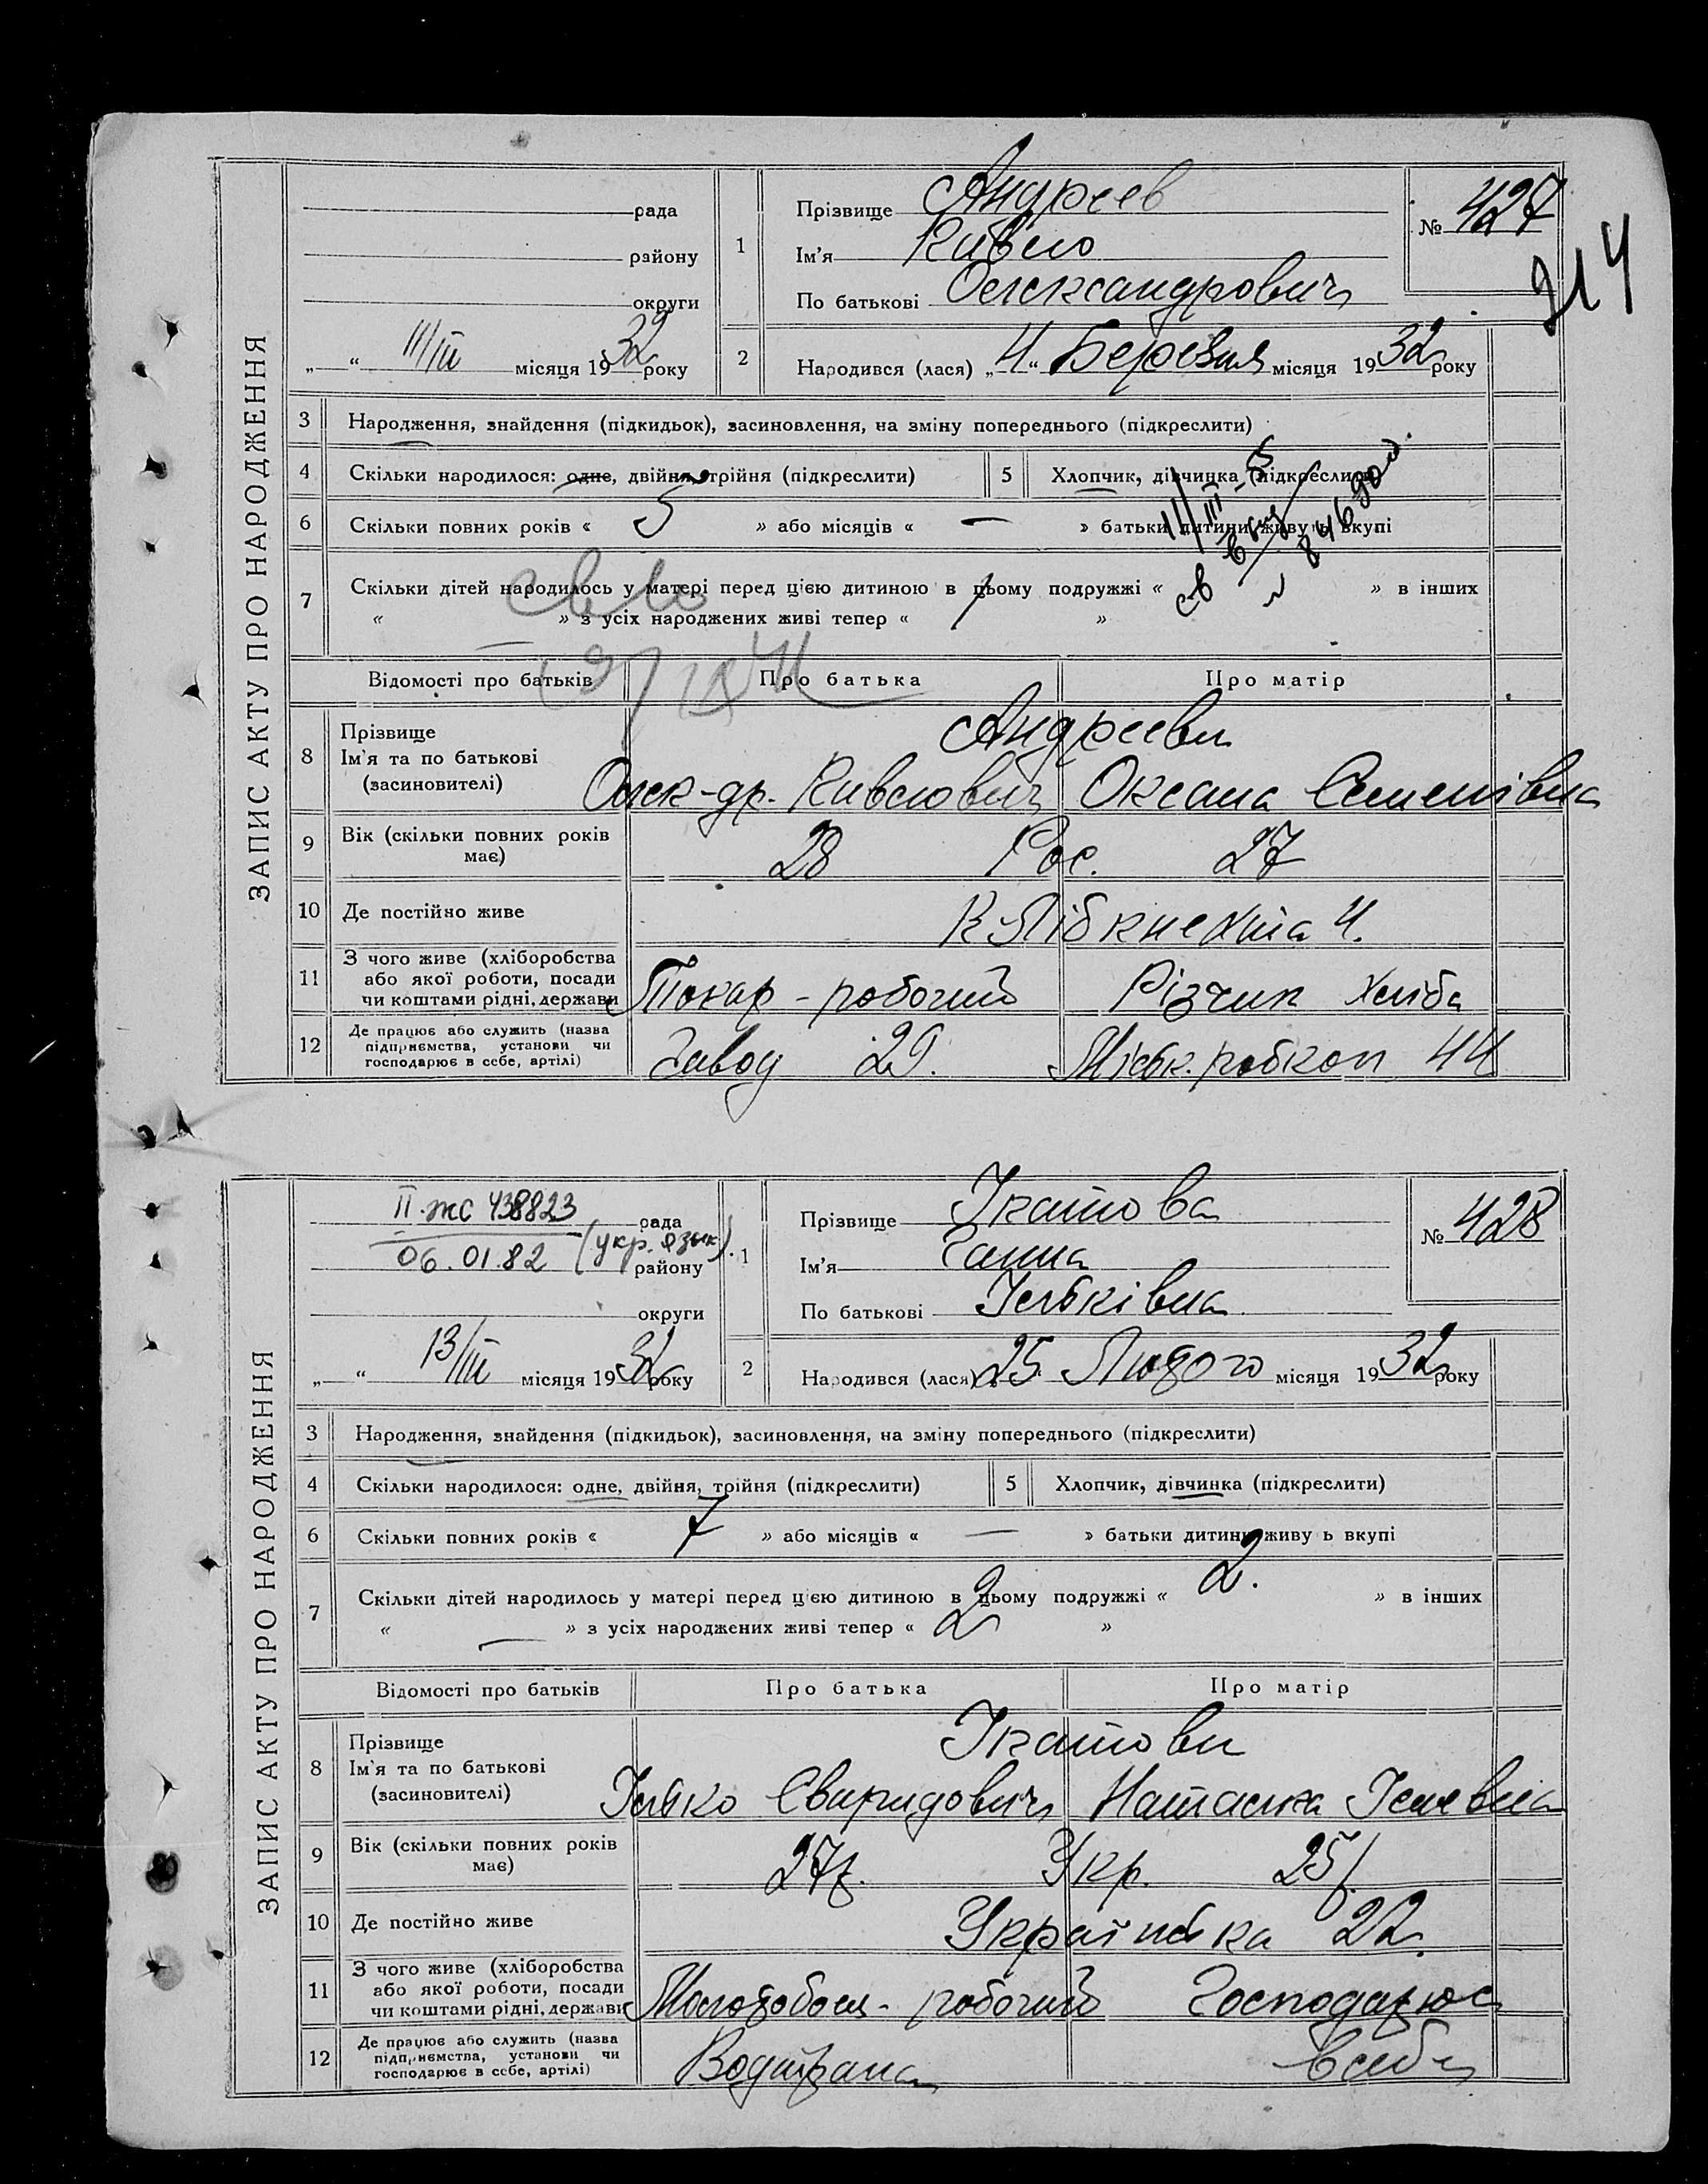 ЗАПИС АКТУ ПРО НАРОДЖЕННЯ
рада
району
округи
„ “ 11/III місяця 1932 року
1
Прізвище Андреєв
Ім'я
По батькові Олександрович
№ 427
214
2
Народився (лася) „4“ Березня місяця 1932 року
3 Народження, знайдення (підкидьок), засиновлення, на зміну попереднього (підкреслити)
4 Скільки народилося: одне, двійня, трійня (підкреслити)
5 Хлопчик, дівчинка (підкреслити)
6 Скільки повних років « 5 » або місяців « — » батьки дитини живуть вкупі
7 Скільки дітей народилось у матері перед цією дитиною в цьому подружжі « » в інших
« — » з усіх народжених живі тепер « 1 »
Відомості про батьків
Про батька
Про матір
8 Прізвище Ім'я та по батькові (засиновителі)
Андреєви
Олек-др. Оксана Семенівна
9 Вік (скільки повних років має)
28 Рос. 27
10 Де постійно живе
К Лібкнехта 4.
11 З чого живе (хліборобства або якої роботи, посади чи коштами рідні, держави
Токар - робочий Різчик хліба
12 Де працює або служить (назва підприємства, установи чи господарює в себе, артілі)
Завод 29. Міськ. робкоп 44
ЗАПИС АКТУ ПРО НАРОДЖЕННЯ
II-ЖС 438823 рада
06.01.82 (укр. язык). району
округи
„ “ 13/III місяця 1932 року
1
Прізвище Ікатова
Ім'я Ганна
По батькові Ільківна
№ 428
2
Народився (лася) „25. Лютого місяця 1932 року
3 Народження, знайдення (підкидьок), засиновлення, на зміну попереднього (підкреслити)
4 Скільки народилося: одне, двійня, трійня (підкреслити)
5 Хлопчик, дівчинка (підкреслити)
6 Скільки повних років « 7 » або місяців « — » батьки дитини живу ь вкупі
7 Скільки дітей народилось у матері перед цією дитиною в цьому подружжі « 2. » в інших
« — » з усіх народжених живі тепер « 2 »
Відомості про батьків
Про батька
Про матір
8 Прізвище Ім'я та по батькові (засиновителі)
Ікатови
Ілько Свиридович Наталка
9 Вік (скільки повних років має)
27 Укр. 25
10 Де постійно живе
Українська 22.
11 З чого живе (хліборобства або якої роботи, посади чи коштами рідні, держави
Молотобоєц - робочий Господарює
12 Де працює або служить (назва підприємства, установи чи господарює в себе, артілі)
в себе